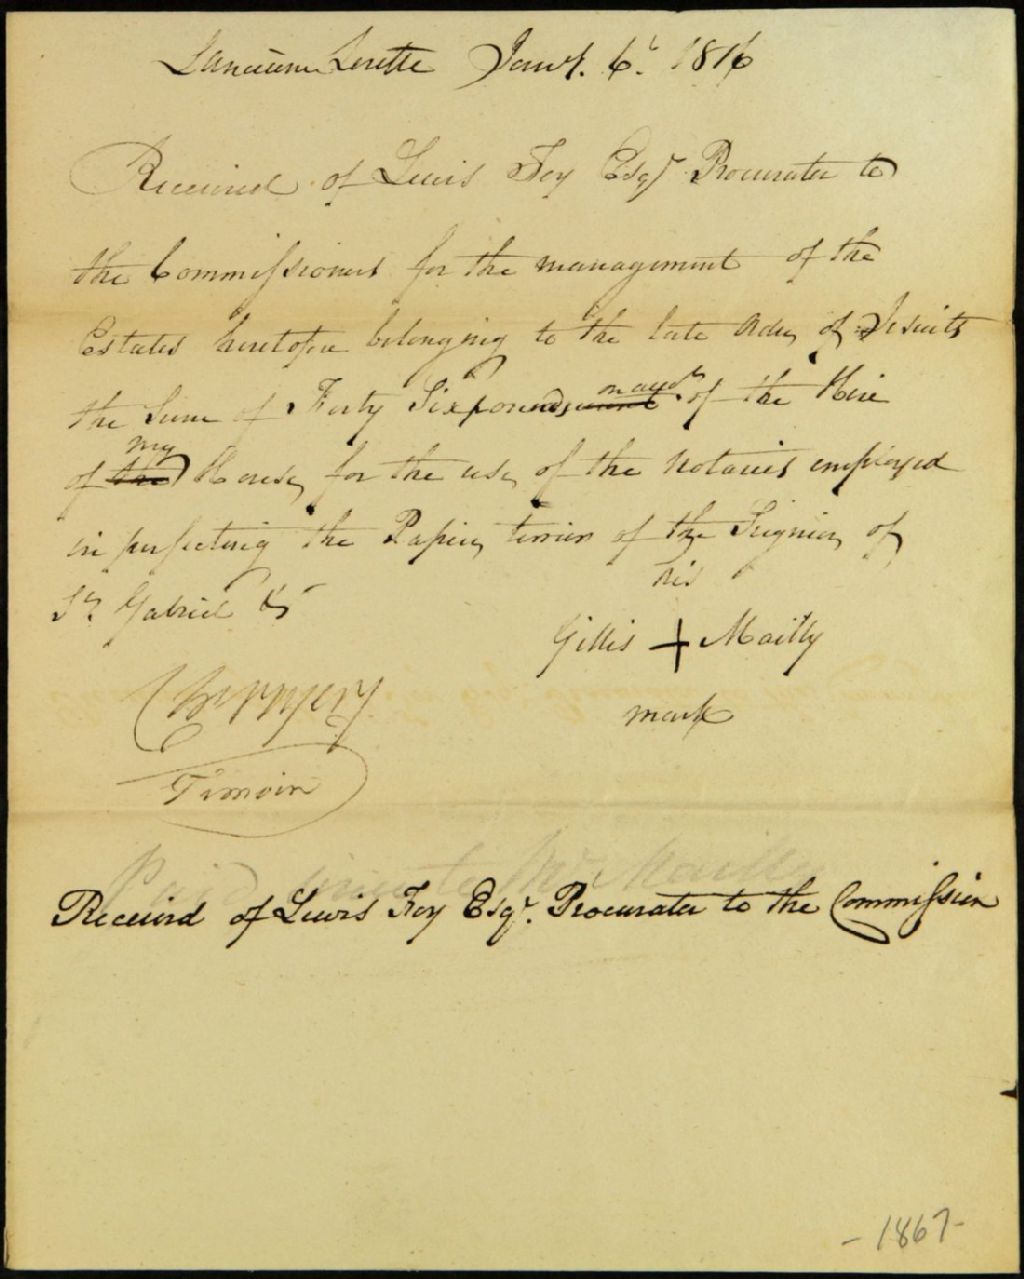 Ancienne Lorette Jany. 6. 1816
Received of Lewis Foy Esqr Procurator to
the Commissioners for the management of the
Estates heretofore belonging to the late Order of Jesuits
the Sum of Forty Six pounds of the Hire
my
of the House, for the use of the Notaries employed
in perfecting the Papier terrier of the Seignier of
his
St. Gabriel &c
Gillis + Mailly
mark
Temoin
Paid Mr. Mailly
Received of Lewis Foy Esqr. Procurator to the Commission
- 1867 -